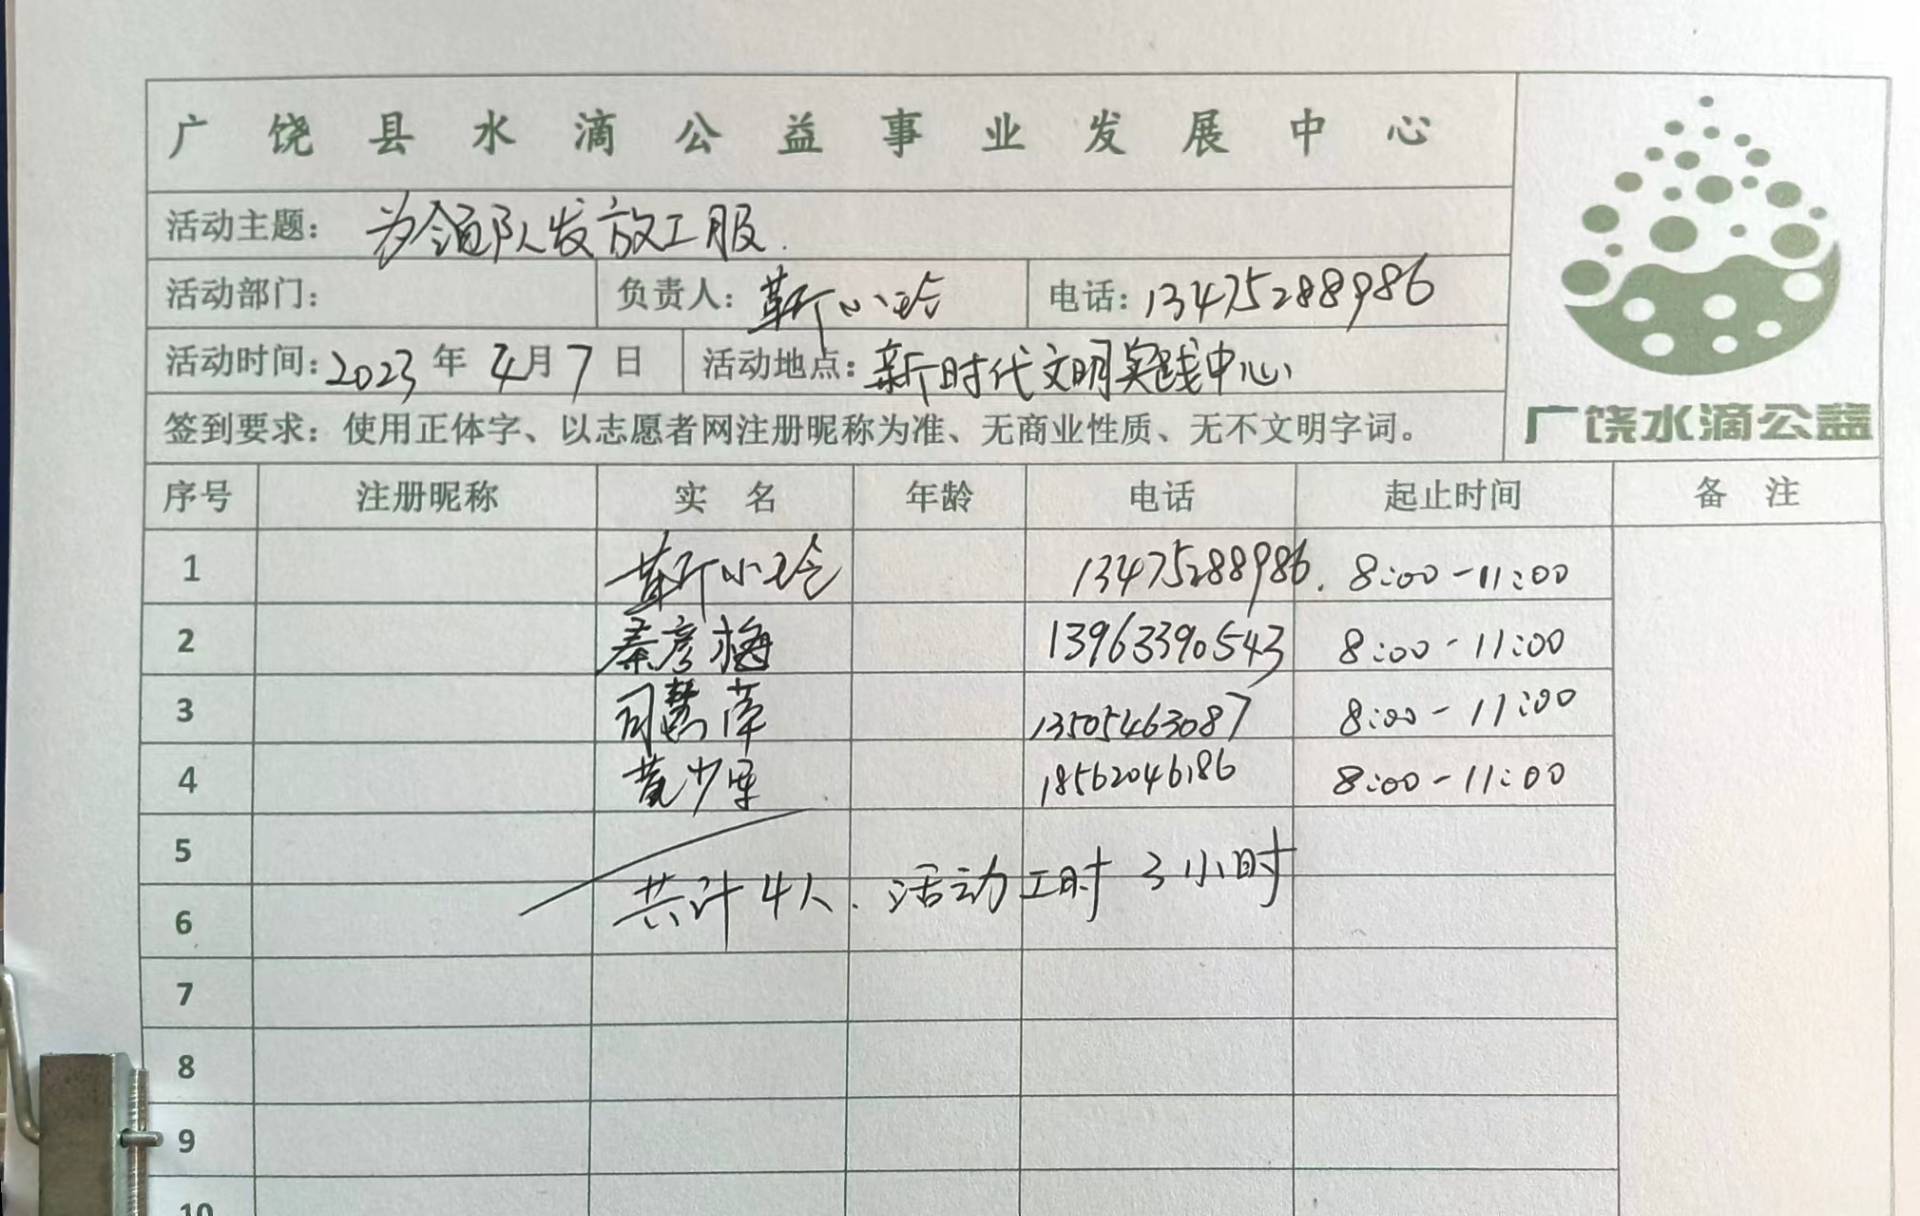 广饶县水滴公益事业发展中心
活动主题：为领队发放工服.
活动部门： 负责人：靳小玲 电话：13475288986
活动时间：2023年4月7日 活动地点：新时代文明实践中心
签到要求：使用正体字、以志愿者网注册昵称为准、无商业性质、无不文明字词。
广饶水滴公益
序号 注册昵称 实名 年龄 电话 起止时间 备注
1 靳小玲 13475288986. 8:00-11:00
2 秦彦梅 13963390543 8:00-11:00
3 司慧萍 13505463087 8:00-11:00
4 黄少军 18562046186 8:00-11:00
5
共计4人.活动工时3小时
6
7
8
9
10